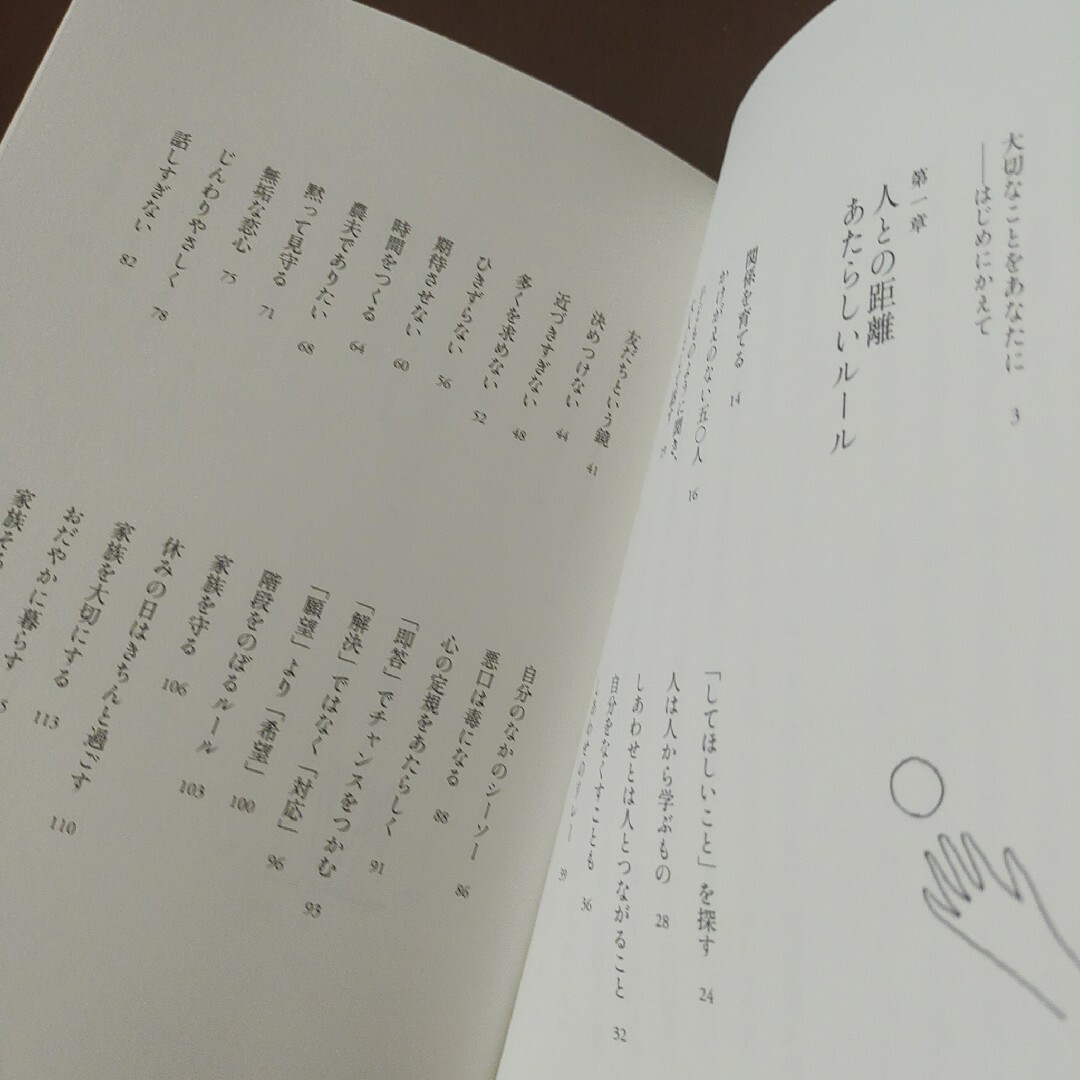 大切なことをあなたに
――はじめにかえて 3
第一章
人との距離
あたらしいルール
関係を育てる 14
かけがえのない五〇人 16
「してほしいこと」を探す 24
人は人から学ぶもの 28
しあわせとは人とつながること 32
自分をなくすことも 36
39
友だちという鏡 41
決めつけない 44
近づきすぎない 48
多くを求めない 52
ひきずらない 56
期待させない 60
時間をつくる 64
農夫でありたい 68
黙って見守る 71
無垢な恋心 75
じんわりやさしく 78
話しすぎない 82
自分のなかのシーソー 86
悪口は毒になる 88
心の定規をあたらしく 91
「即答」でチャンスをつかむ 93
「解決」ではなく「対応」 96
「願望」より「希望」 100
階段をのぼるルール 103
家族を守る 106
休みの日はきちんと過ごす 110
家族を大切にする 113
おだやかに暮らす
家族